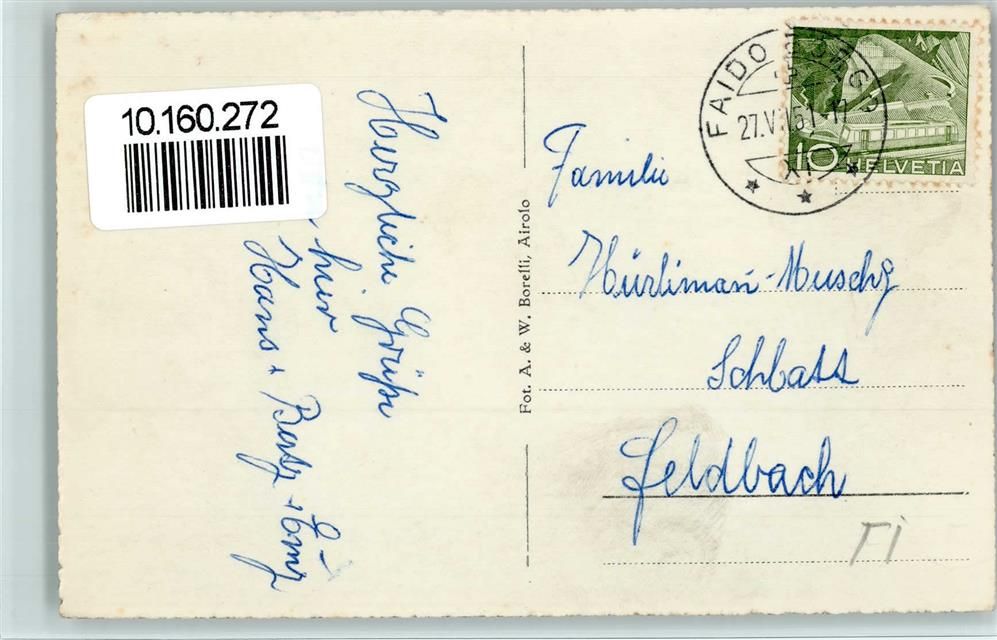 10.160.272
Herzliche Grüsse
hier
Hans + Berty +
Fot. A. & W. Borelli, Airolo
FAIDO BORGO
27.VI.51-11
XI
10 HELVETIA
Familie
Hürlimañ-Muschg
Schlatt
Feldbach
TI